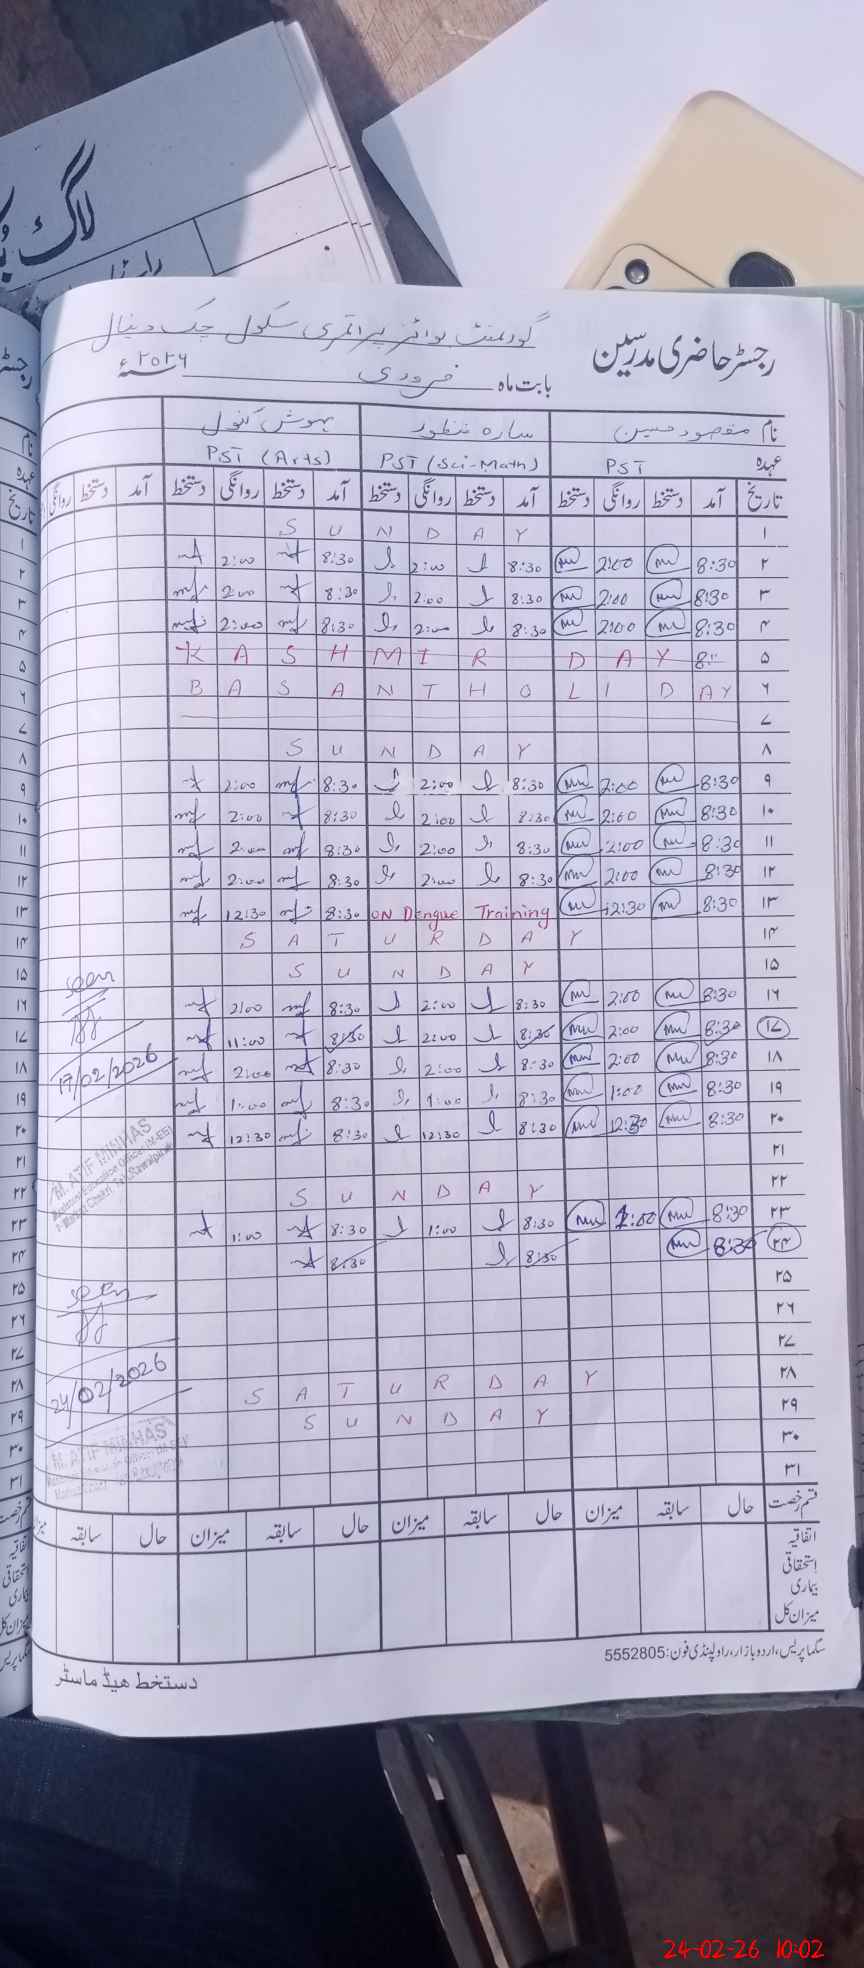 لاگ
رجسٹر حاضری مدرسین
گورنمنٹ بوائز پرائمری سکول چک دینال
بابت ماہ فروری ۲۰۲۶ سنہء
نام مقصود حسین سارہ منظور بہوش کنول
عہدہ PST PST (Sci-Math) PST (Arts)
تاریخ آمد دستخط روانگی دستخط آمد دستخط روانگی دستخط آمد دستخط روانگی دستخط آمد دستخط روانگی
۱ SUNDAY
۲ 8:30 2:00 8:30 2:00 8:30 2:00
۳ 8:30 2:00 8:30 2:00 8:30 2:00
۴ 8:30 2:00 8:30 2:00 8:30 2:00
۵ KASHMIR DAY 8:
۶ BASANT HOLIDAY
۷
۸ SUNDAY
۹ 8:30 2:00 8:30 2:00 8:30 2:00
۱۰ 8:30 2:00 8:30 2:00 8:30 2:00
۱۱ 8:30 2:00 8:30 2:00 8:30 2:00
۱۲ 8:30 2:00 8:30 2:00 8:30 2:00
۱۳ 8:30 12:30 ON Dengue Training 8:30 12:30
۱۴ SATURDAY
۱۵ SUNDAY
۱۶ 8:30 2:00 8:30 2:00 8:30 2:00
۱۷ 8:30 2:00 8:30 2:00 8:30 11:00
۱۸ 8:30 2:00 8:30 2:00 8:30 2:00
۱۹ 8:30 1:00 8:30 1:00 8:30 1:00
۲۰ 8:30 12:30 8:30 12:30 8:30 12:30
۲۱
۲۲ SUNDAY
۲۳ 8:30 1:00 8:30 1:00 8:30 1:00
۲۴ 8:30 8:30 8:30
۲۵
۲۶
۲۷
۲۸ SATURDAY
۲۹ SUNDAY
۳۰
۳۱
seen
17/02/2026
M. ATIF MINHAS
seen
24/02/2026
M. ATIF MINHAS
قسم رخصت حال سابقہ میزان حال سابقہ میزان حال سابقہ میزان حال سابقہ
اتفاقیہ
استحقاقی
بیماری
میزان کل
سگما پریس، اردو بازار، راولپنڈی فون: 5552805
دستخط ہیڈ ماسٹر
24-02-26 10:02